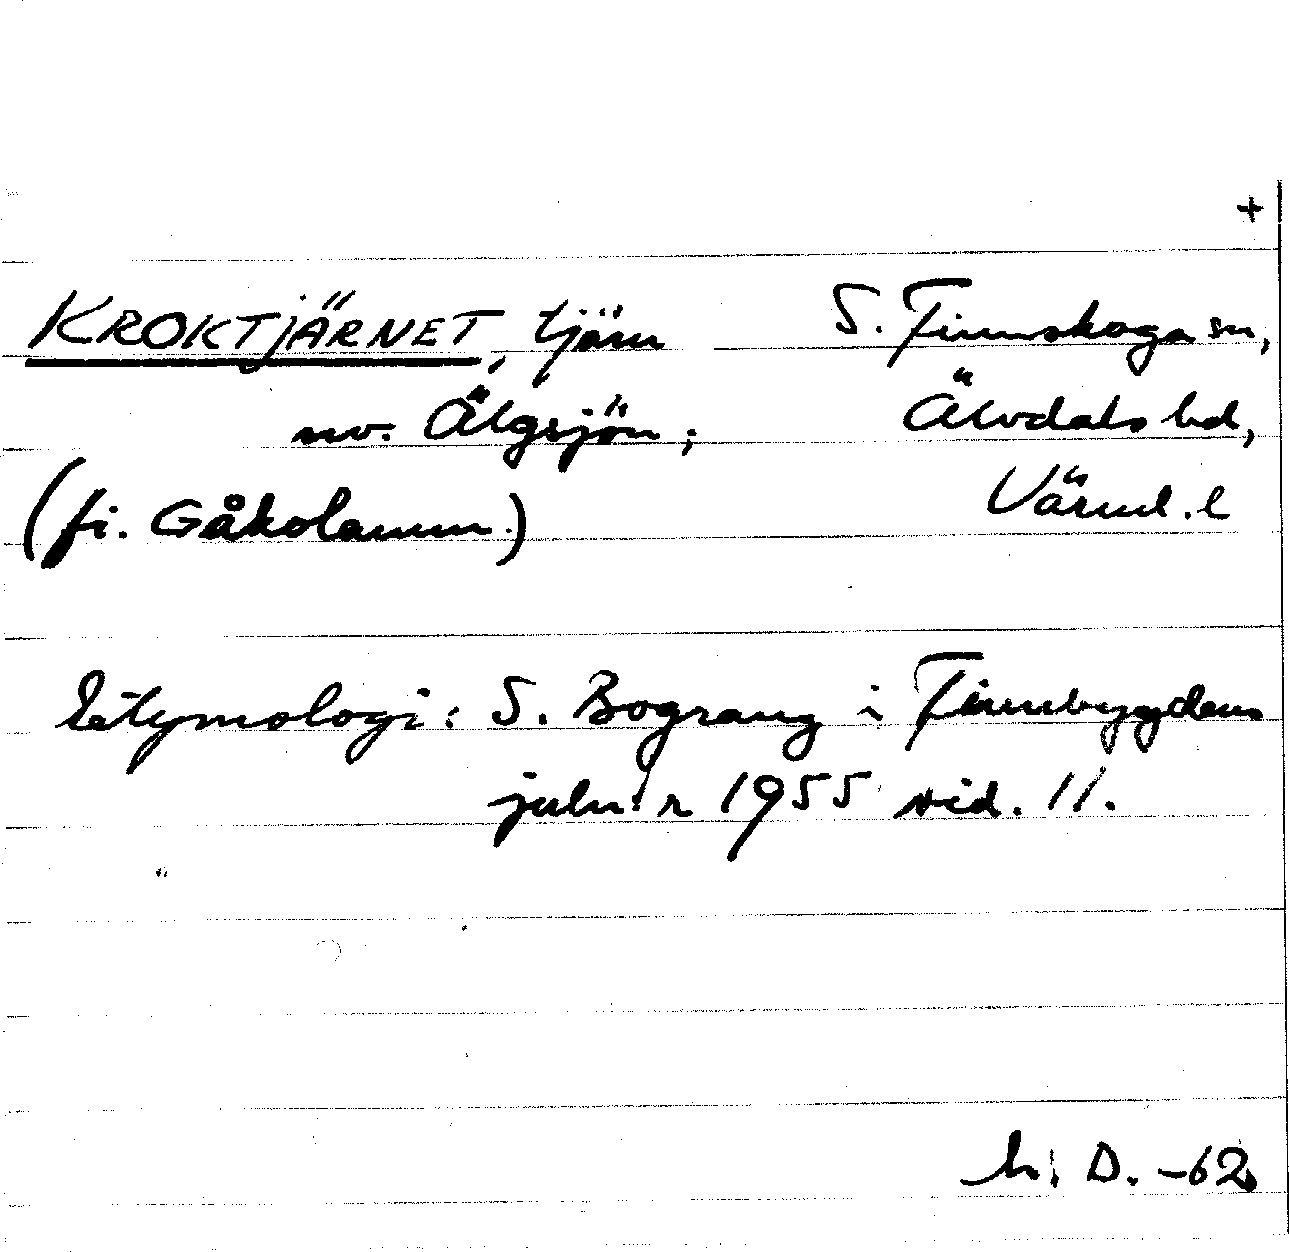 +
KROKTJÄRNET, tjärn S. Finnskoga sn,
nv. Älgsjön; Älvdals hd,
(fi. Gåkolamm.) Värml. l
Etymologi: S. Bograng i Finnbygdens
julnr 1955 sid. 11.
h. D. -62